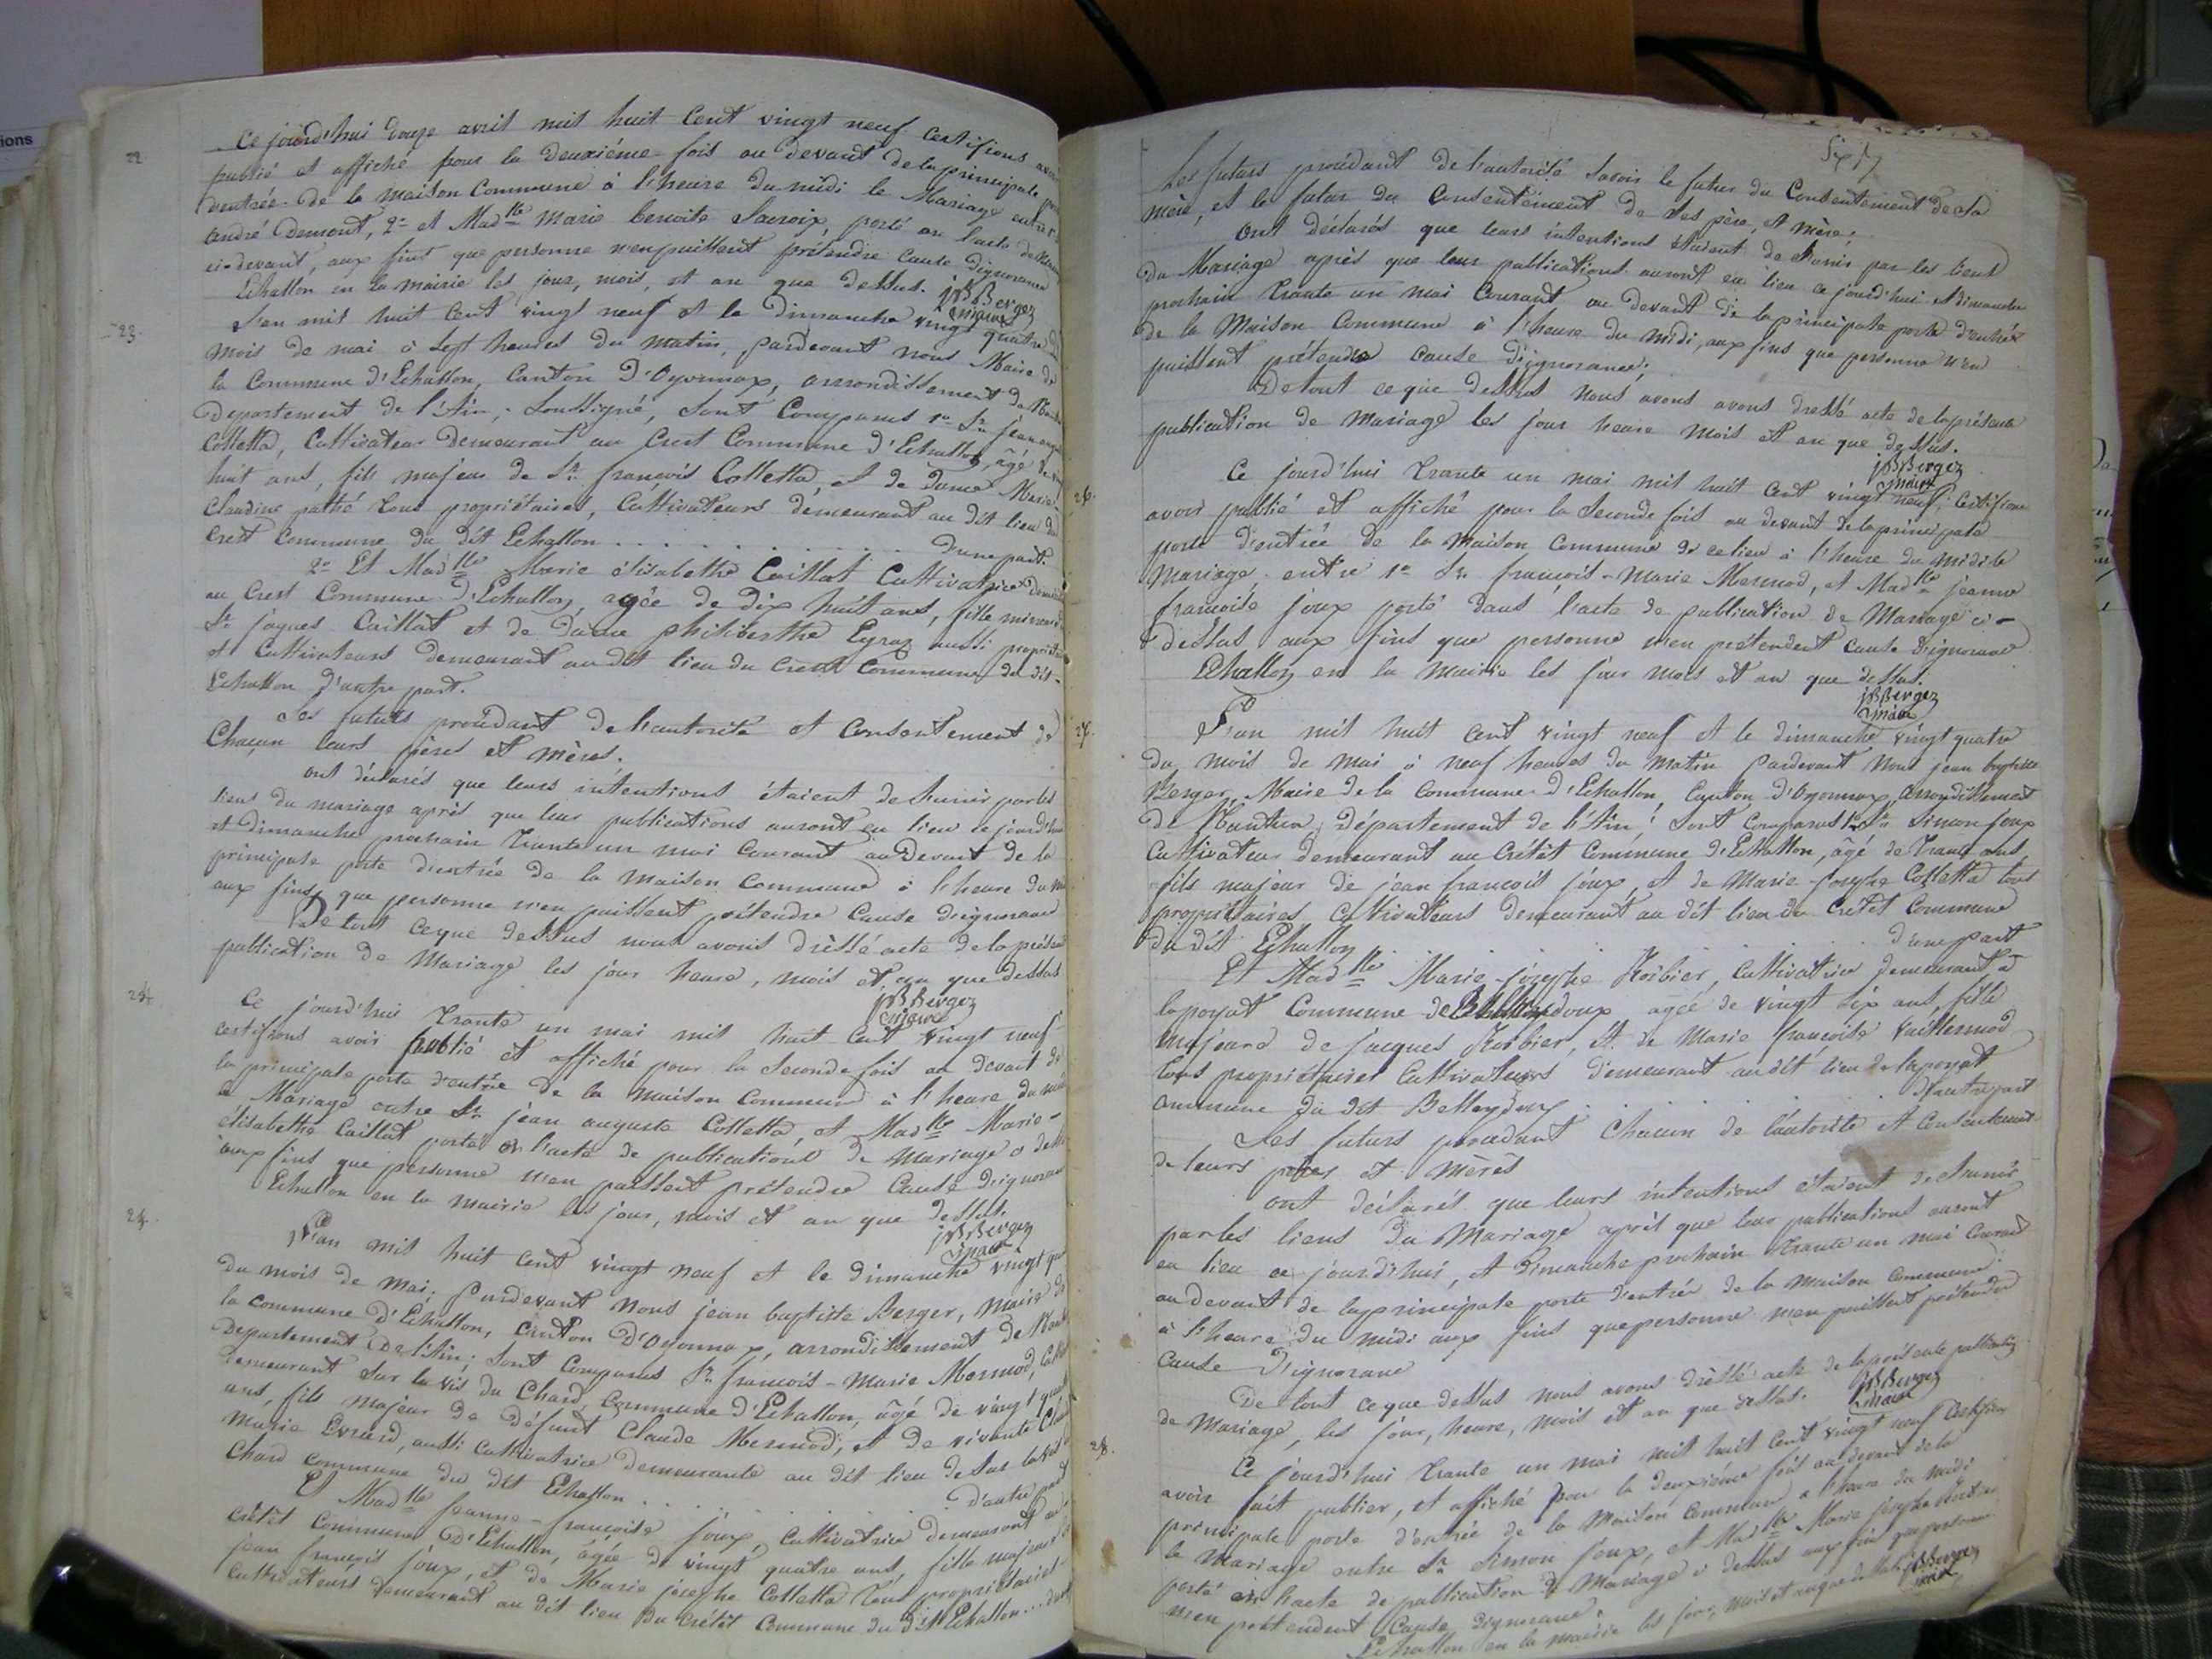 ions
22.
Ce jourd'hui douze avril mil huit Cent vingt neuf certifions avoir
publié et affiché pour la deuxiéme fois au devant de la principale
dentrée de la maison Commune à l'heure du midi le Mariage entre
andré Demont, 2° et Madlle Marie benoite Lacroix, porté en l'acte de
ci-devant, aux fins que personne n'en puissent prétendre cause d'ignorance
Echallon en la mairie les jour, mois, et an que dessus. jB Berger
maire
23.
L'an mil huit Cent vingt neuf et le dimanche vingt quatre du
mois de mai à sept heures du matin, pardevant nous Maire de
la Commune d'Echallon, Canton d'Oyonnax, arrondissement de
Departement de l'Ain; soussigné, sont Comparus 1° Sr jean
Colletta, Cultivateur demeurant au Crest Commune d'Echallon, âgé de
huit ans, fils majeur de Sr françois Colletta, et de Dame Marie
Claudine tous propriétaires, Cultivateurs demeurant au dit lieu du
Crest Commune du dit Echallon . . . . . . . . . . . d'une part.
2° Et Madlle Marie élisabethe Caillat Cultivatrice
au Crest Commune d'Echallon, agée de dix huit ans, fille mineure
Sr jaques Caillat et de Dame philiberthe Eyraz aussi
et Cultivateurs demeurant au dit lieu du Crest Commune du dit
Echallon d'autre part.
Les futurs procédant de l'autorité et Consentement de
Chacun leurs pères et mères.
ont déclarés que leurs intentions étaient de s'unir par les
liens du mariage après que leur publications auront eu lieu ce jourd'hui
et dimanche prochain trante un mai Courant au devant de la
principale porte d'entrée de la maison Commune à l'heure du
aux fins que personne n'en puissent prétendre Cause d'ignorance
De tout ceque dessus nous avons dréssé acte de la présente
publication de Mariage les jour heure, mois et an que dessus
jB Berger
maire
24.
Ce jourd'hui trante un mai mil huit Cent vingt neuf
certifions avoir publié et affiché pour la seconde fois au devant de
la principale porte d'entrée de la maison Commune à l'heure du
le Mariage entre Sr jean auguste Colletta, et Madlle Marie-
élisabethe Caillat porté en l'acte de publications de Mariage
aux fins que personne n'en puissent prétendre Cause d'ignorance
Echallon en la mairie les jour, mois et an que dessus.
jB Berger
maire
L'an mil huit Cent vingt neuf et le dimanche vingt
du mois de mai. Pardevant Nous jean baptiste Berger, maire de
la commune d'Echallon, canton d'Oyonnax, arrondissement de
Departement De l'Ain; sont Comparus Sr françois-marie Mermod,
demeurant sur la vis du Chard, Commune d'Echallon, âgé de vingt
ans, fils majeur de défunt Claude Mermod, et de vivante
Marie Evrard, aussi Cultivatrice demeurante au dit lieu de sur la
Chard commune du dit Echallon . . . . . . . d'autre part
Et Madlle jeanne-françoise joux, Cultivatrice demeurant au
crétêt Commune D'Echallon, âgée de vingt quatre ans, fille majeure
jean françois joux, et de Marie josephe Colletta tous propriétaires
Cultivateurs demeurant au dit lieu du Crétêt Commune du dit Echallon
Les futurs procédant de l'autorité savoir le futur du Consentement de sa
mère, et le futur du Consentement de ses père, et mère;
Ont déclarés que leurs intentions étaient de s'unir par les liens
du Mariage après que leur publications auront eu lieu ce jourd'hui dimanche
prochain trante un mai Courant au devant de la principale porte d'entrée
de la Maison Commune à l'heure du midi, aux fins que personne n'en
puissent prétendre cause d'ignorance;
De tout ce que dessus nous avons avons dressé acte de la présente
publication de Mariage les jour heure mois et an que dessus.
jB Berger
maire
26.
Ce jourd'hui trante un mai mil huit Cent vingt neuf, Certifions
avoir publié et affiché pour la seconde fois au devant de la principale
porte d'entrée de la maison Commune de ce lieu à l'heure du midi le
Mariage entre 1° Sr. françois-Marie Mermod, et Madlle jeanne
françoise joux porté dans l'acte de publication de Mariage ci-
dessus aux fins que personne n'en prétendent cause d'ignorance
Echallon en la Mairie les jour mois et an que dessus.
jB Berger
maire
27.
L'an mil huit Cent vingt neuf et le dimanche vingt quatre
du mois de mai à neuf heures du matin Pardevant Nous jean baptiste
Berger, Maire de la Commune d'Echallon, Canton d'Oyonnax, arrondissement
de Nantua, Département de l'Ain; sont Comparus 1° Sr Simon joux
Cultivateur demeurant au Crétêt Commune d'Echallon, âgé de trante ans
fils majeur de jean françois joux, et de Marie-josephe Colletta tous
propriétaires Cultivateurs demeurant au dit lieu du Crétêt Commune
du dit Echallon . . . . . d'une part
Et Madlle Marie-josephe Korbier, Cultivatrice demeurant à
la poyat Commune de Belleydoux agée de vingt six ans, fille
majeure de jacques Korbier, et de Marie françoise Vaillermod
tous propriétaires Cultivateurs demeurant au dit lieu de la poyat
Commune du dit Belleydoux . . . . . d'autre part
Les futurs procédant Chacun de l'autorité et Consentement
de leurs pères et mères
ont déclarés que leurs intentions étaient de s'unir
par les liens du Mariage après que leur publications auront
eu lieu ce jourd'hui, et Dimanche prochain trante un mai Courant
au devant de la principale porte d'entrée de la maison Commune
à l'heure du midi aux fins que personne n'en puissent prétendre
Cause d'ignorance
De tout ce que dessus nous avons dréssé acte de la présente publication
de Mariage, les jour, heure, mois et an que dessus.
jB Berger
maire
28.
Ce jourd'hui trante un mai mil huit Cent vingt neuf Certifions
avoir fait publier, et affiché pour la deuxiéme fois au devant de la
principale porte d'entrée de la Maison Commune à l'heure du midi
le Mariage entre Sr Simon joux, et Madlle Marie josephe
porté en l'acte de publication de Mariage ci dessus aux fins que personne
n'en prétendent Cause d'ignorance.
Echallon en la mairie les jour, mois et an que dessus jB Berger
maire